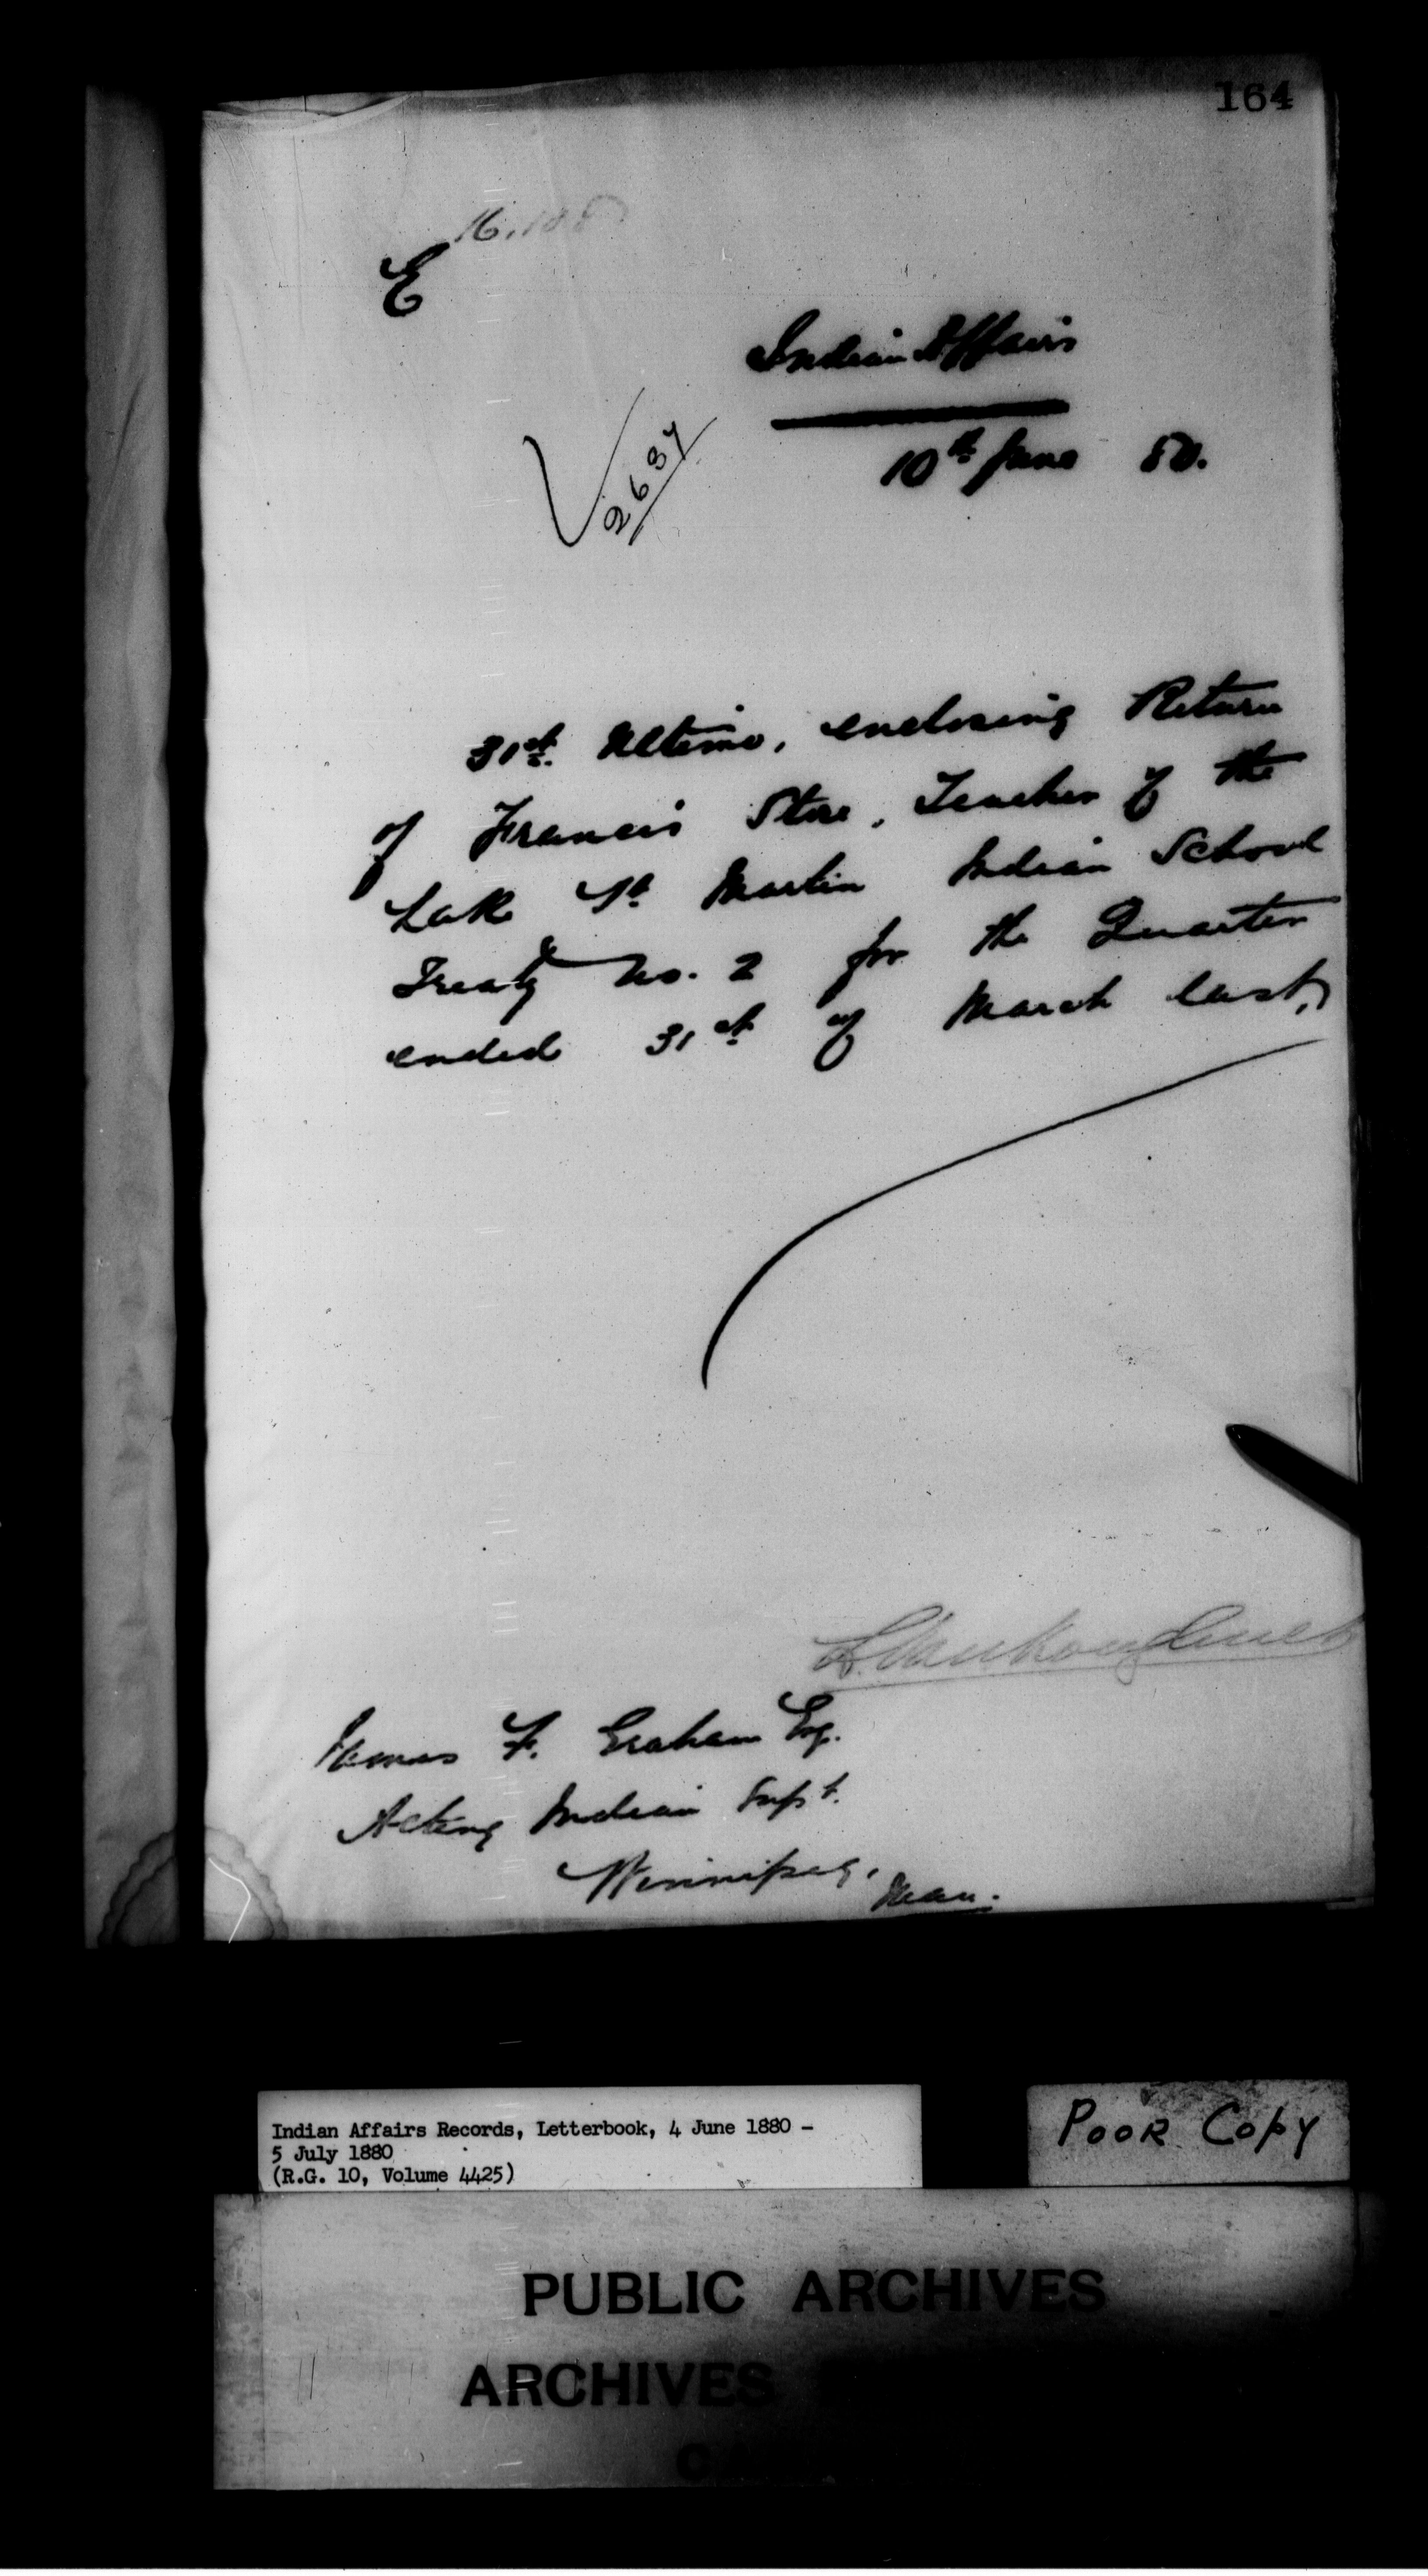 164
E
Indian Affairs
10th June 80.
2687
31st. Ultimo, enclosing Return
of Francis Storr, Teacher of the
Lake St Martin Indian School
Treaty No. 2 for the Quarter
ended 31st of March last,
L. Vankoughnet
James F. Graham Esq.
Acting Indian Supt.
Winnipeg,
Man.
Indian Affairs Records, Letterbook, 4 June 1880 -
5 July 1880
(R.G. 10, Volume 4425)
POOR Copy
PUBLIC ARCHIVES
ARCHIVES